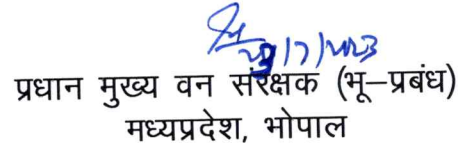 29/7/2023
प्रधान मुख्य वन संरक्षक (भू–प्रबंध)
मध्यप्रदेश, भोपाल